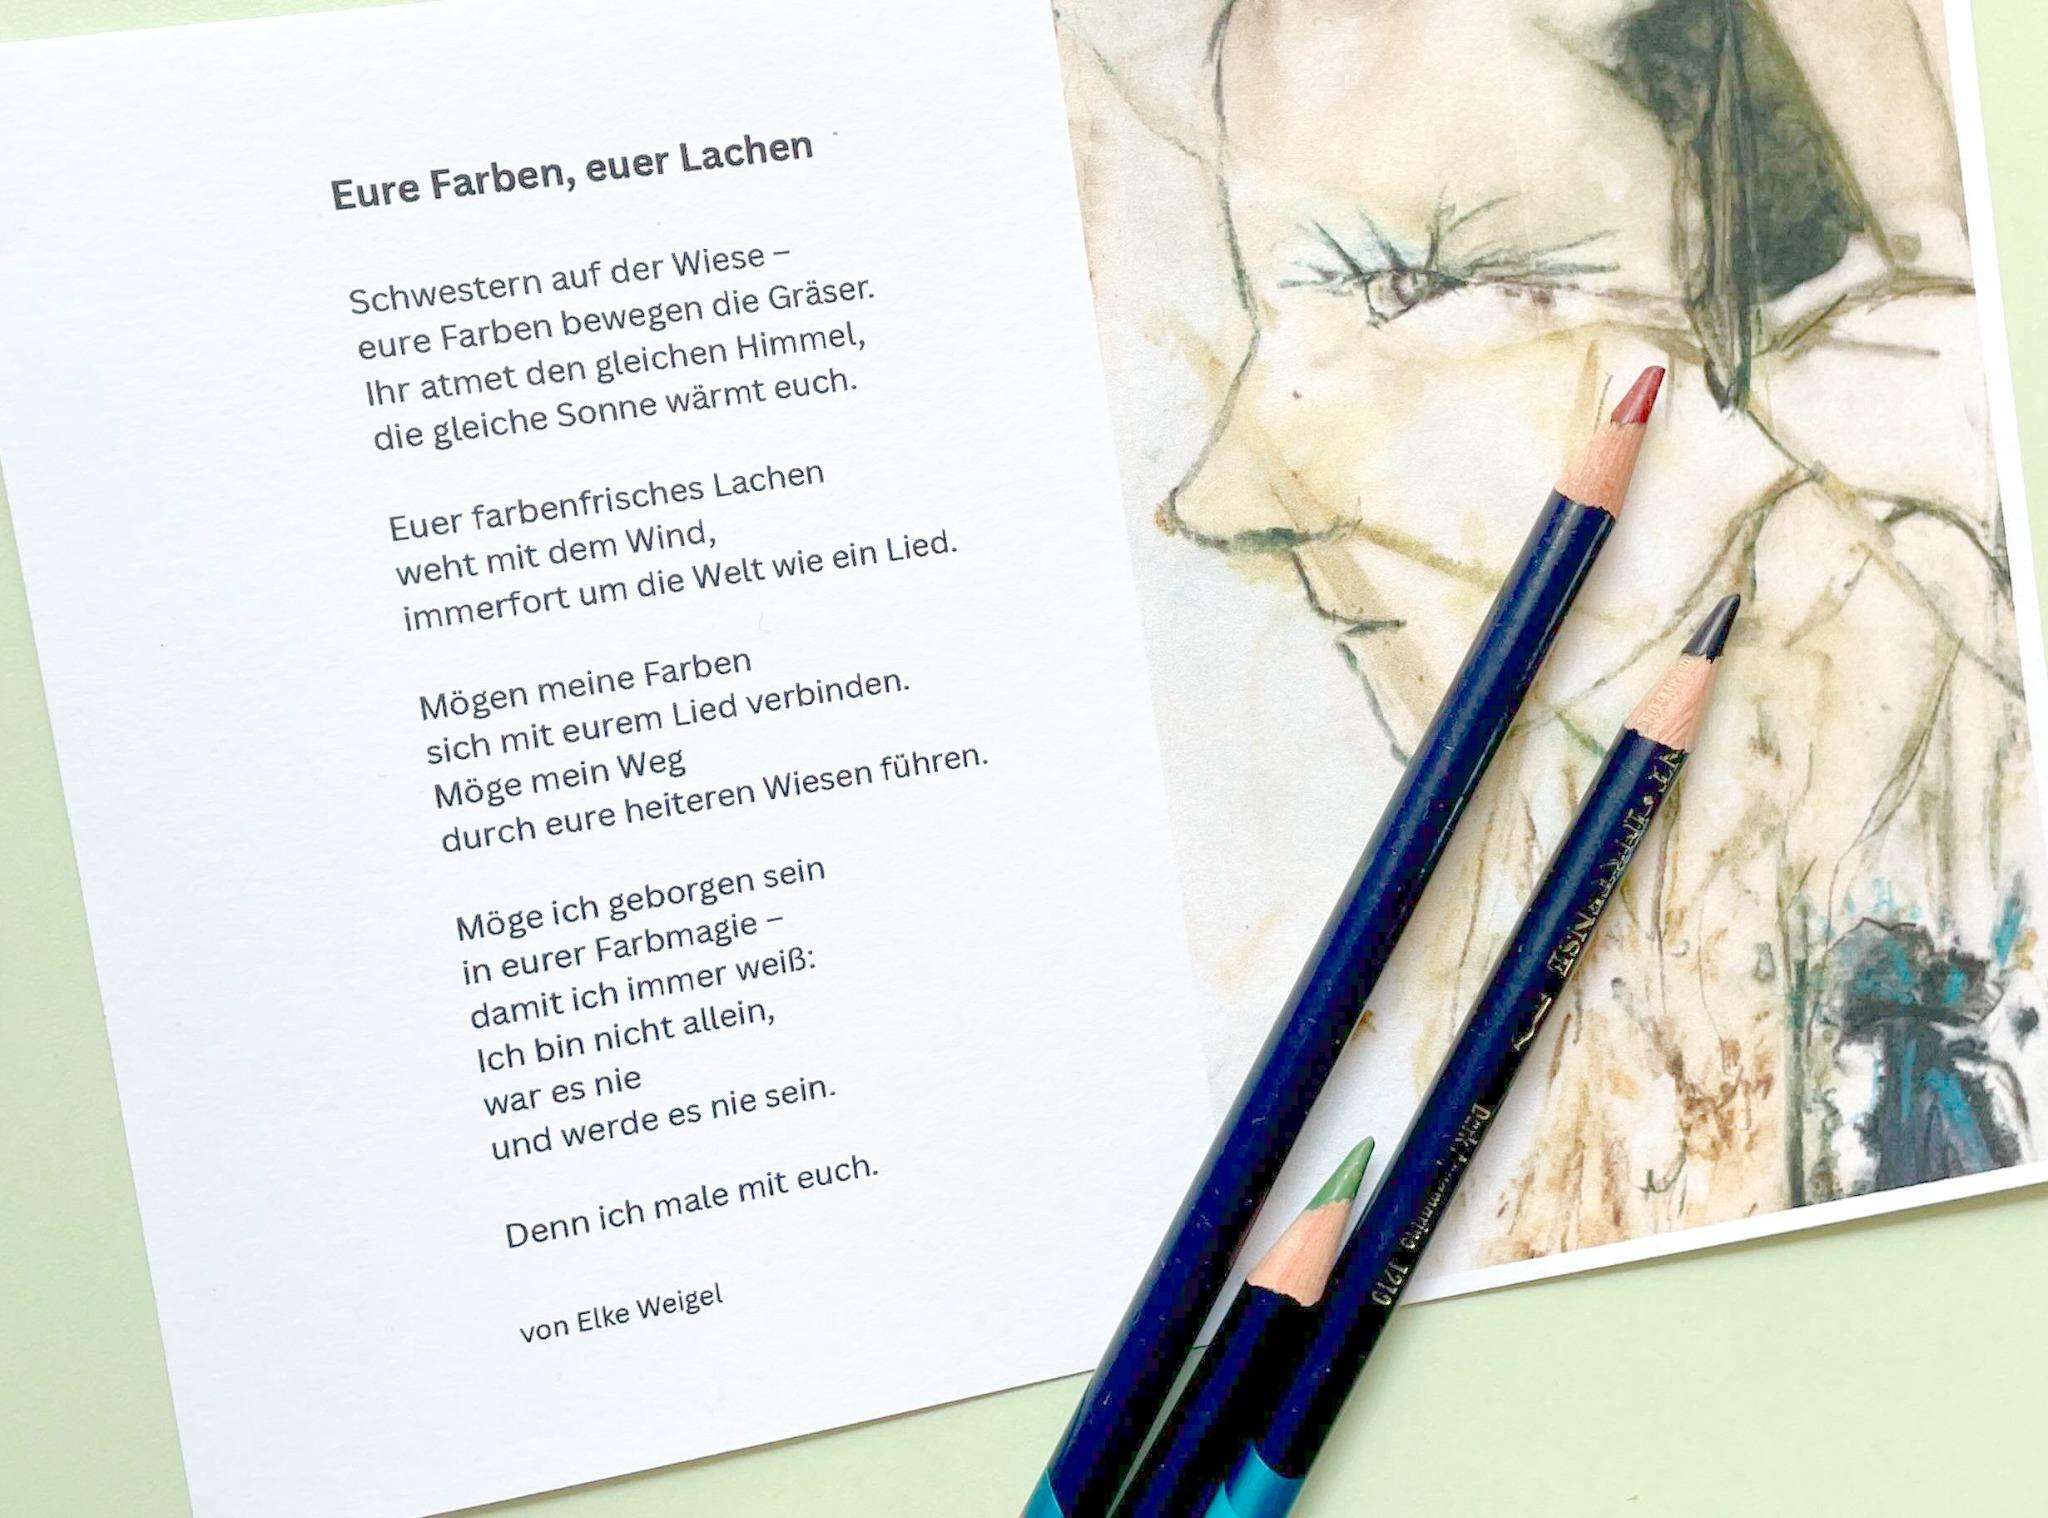 Eure Farben, euer Lachen
Schwestern auf der Wiese –
eure Farben bewegen die Gräser.
Ihr atmet den gleichen Himmel,
die gleiche Sonne wärmt euch.
Euer farbenfrisches Lachen
weht mit dem Wind,
immerfort um die Welt wie ein Lied.
Mögen meine Farben
sich mit eurem Lied verbinden.
Möge mein Weg
durch eure heiteren Wiesen führen.
Möge ich geborgen sein
in eurer Farbmagie –
damit ich immer weiß:
Ich bin nicht allein,
war es nie
und werde es nie sein.
Denn ich male mit euch.
von Elke Weigel